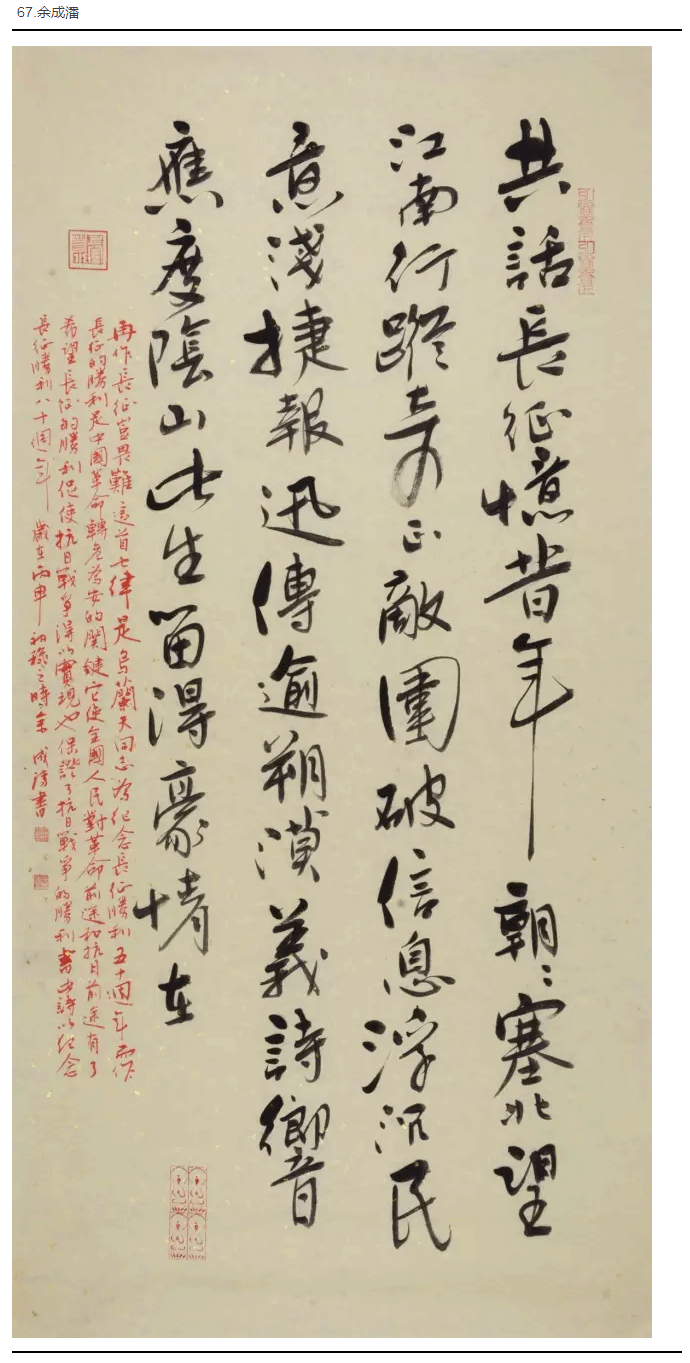 67.余成潘
共話長征憶昔年朝〻塞北望
江南行蹤奇正敵圍破信息浮沉民
意淺捷報迅傳逾朔漠義詩響
應度陰山此生留得豪情在
再作長征豈畏難這首七律是烏蘭夫同志為紀念長征勝利五十週年而作
長征的勝利是中國革命轉危為安的関鍵它使全國人民對革命前途和抗日前途有了
希望長征的勝利促使抗日戰爭得以實現也保證了抗日戰爭的勝利書此詩以紀念
長征勝利八十週年歲在丙申初秋之時余成潘書